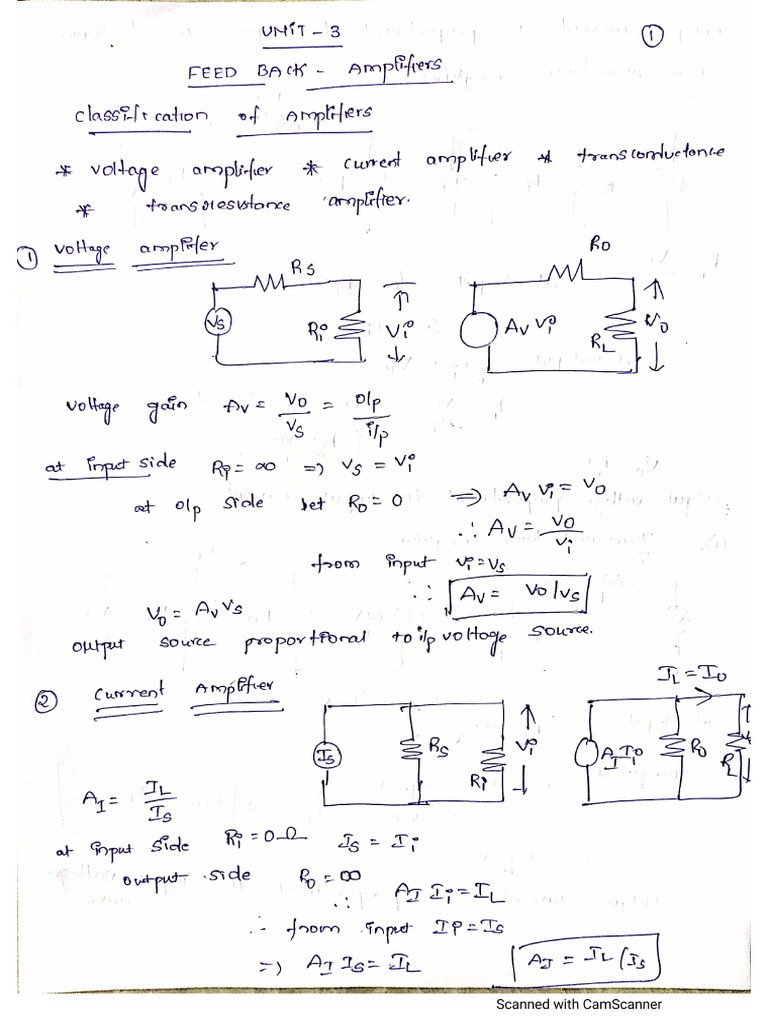 UNIT - 3
①
FEED BACK - Amplifiers
Classification of Amplifiers
* Voltage amplifier * Current amplifier * transconductance
* transresistance amplifier.
① Voltage amplifer
Rs
Vs
Ri
Vi
Ro
Av Vi
RL
Vo
Voltage gain Av = Vo/Vs = o/p / i/p
at input side Ri = ∞ => Vs = Vi
at o/p side let Ro = 0 => Av Vi = Vo
∴ Av = Vo/Vi
from input Vi = Vs
∴ Av = Vo/Vs
Vo = Av Vs
output source proportional to i/p voltage source.
② Current Amplifier
IL = Io
Is
Rs
Ri
Vi
AI Ii
Ro
RL
AI = IL/Is
at input side Ri = 0 Ω Is = Ii
output side Ro = ∞
∴ AI Ii = IL
∴ from input Ii = Is
=> AI Is = IL
AI = IL/Is
Scanned with CamScanner